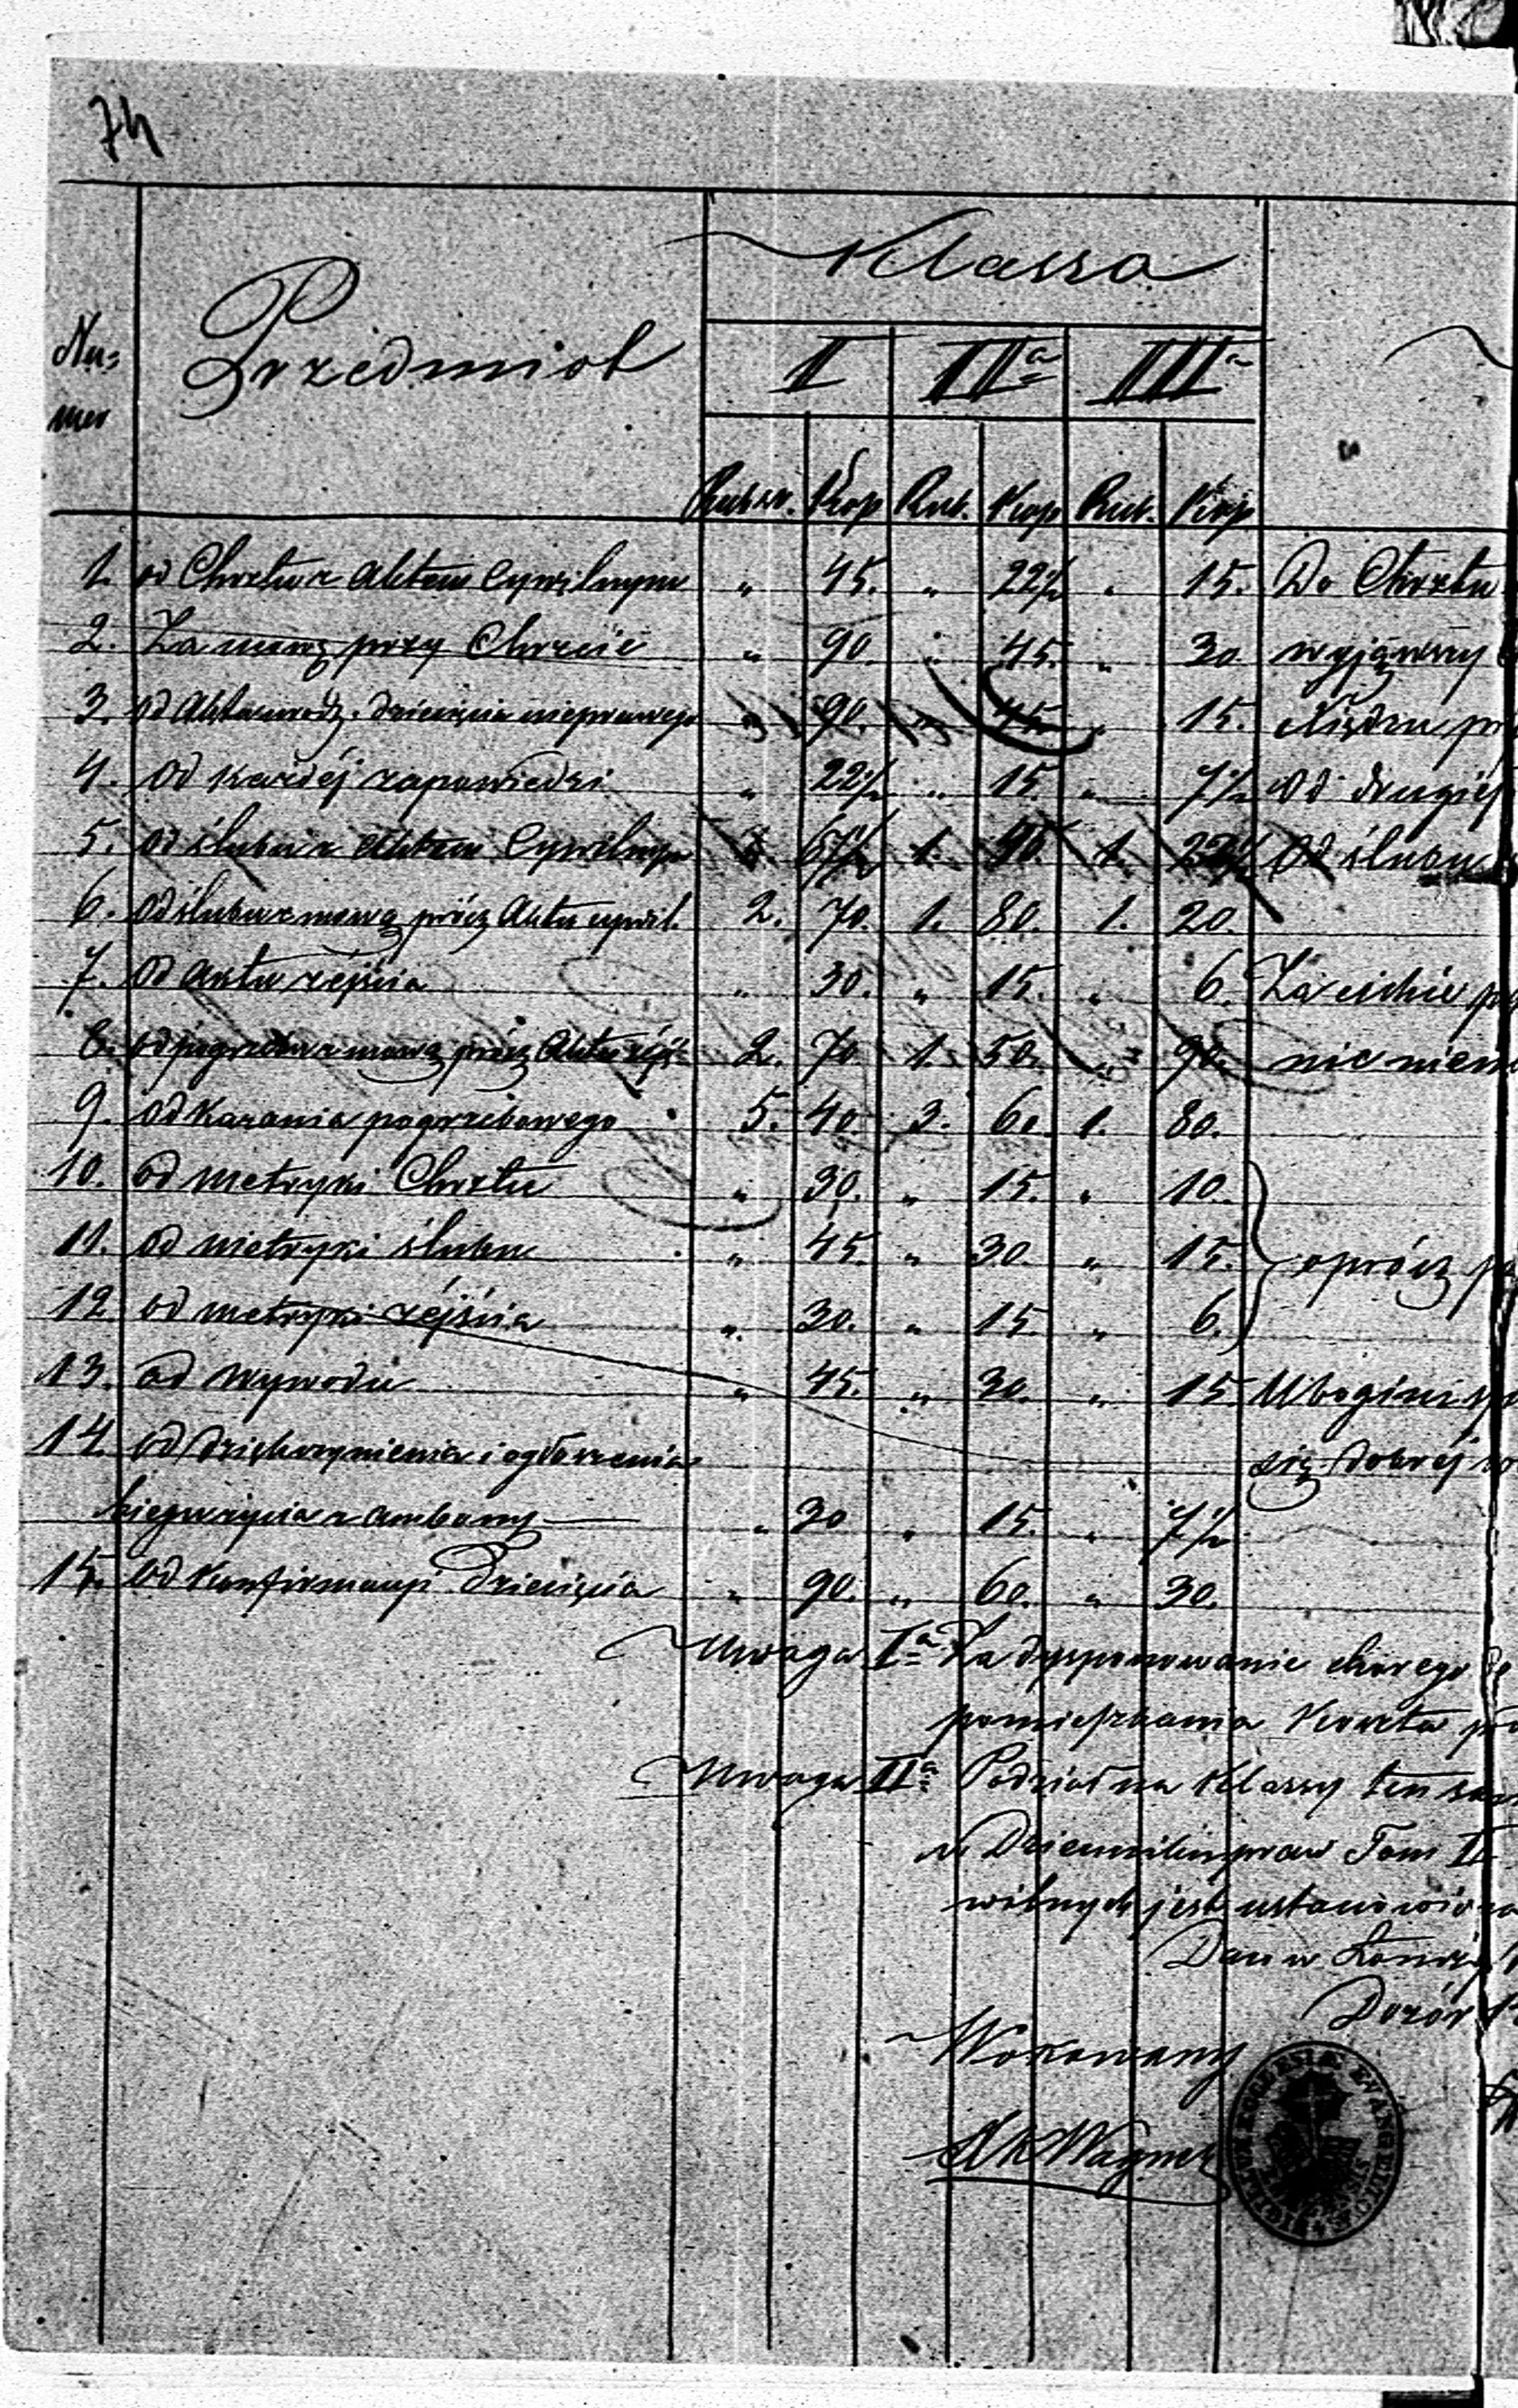 74
Nu-
mer
Przedmiot
Klassa
I IIa IIIa
Rubsr. Kop Rub. Kop Rub. Kop
1. od Chrztu z Aktem Cywilnym " 45. " 22½ " 15. Do Chrztu
2. Za mową przy Chrzcie " 90. " 45. " 30 wyjąwszy
3. od Aktu urodz. dziecięcia nieprawego " 90. " 45. " 15.
4. Od każdéj zapowiedzi " 22½ " 15. " 7½ Od drugiéj
5. Od ślubu z Aktem Cywilnym 67½ 1. 90. 1. 22½ Od ślubu
6. Od ślubu z mową prócz Aktu cywil. 2. 70. 1. 80. 1. 20.
7. Od Aktu zejścia " 30. " 15. " 6. Za ciche
8. od pogrzebu z mową prócz Aktu zejś. 2. 70 1. 50. " 90. nic
9. Od Kazania pogrzebowego 5. 40 3. 60. 1. 80.
10. od metryki Chrztu " 30. " 15. " 10.
11. od metryki ślubu " 45. " 30. " 15. oprócz
12. od metryki zéjścia " 30. " 15. " 6.
13. od wywodu " 45. " 30. " 15. Ubogim
14. od dziękczynienia i ogłoszenia się dobréj
z ambony " 30 " 15. " 7½
15. Od Konfirmacyi Dziecięcia " 90. " 60. " 30.
Uwaga Ia Za dysponowanie chorego do
pomieszkania
Uwaga IIa Podział na Klassy ten sam
w Dzienniku praw Tom II
jest ustanowiona
Dan w Łomży
Dozór
Wokowany
Wagner
ECCLESIÆ EVANGELICÆ